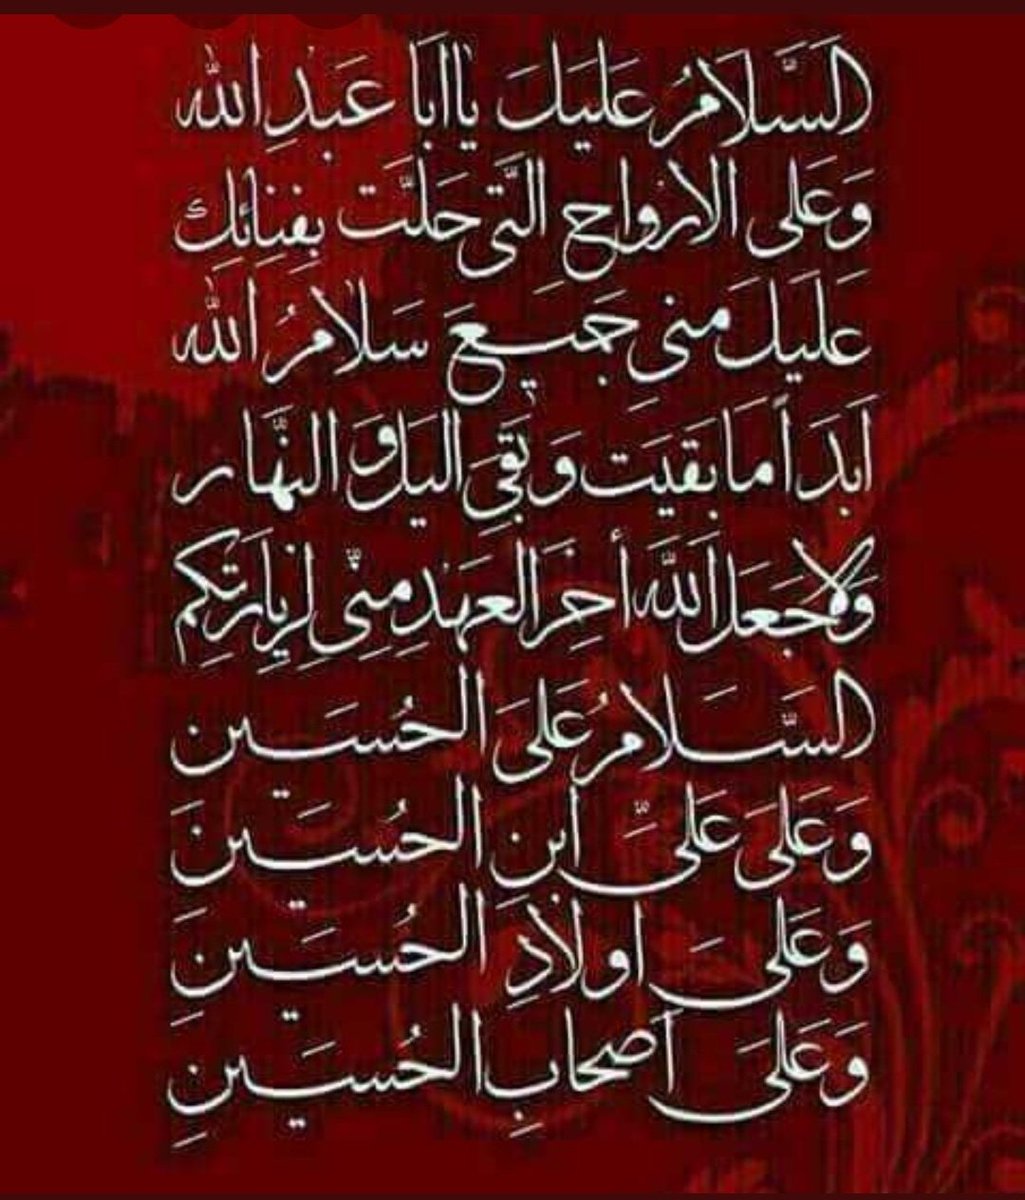 السَّلَامُ عَلَيكَ يَااَبَا عَبدِالله
وَعَلى الارواحِ الَّتى حَلَّت بِفِنائِك
عَلَيكَ مني جَميعَ سَلامُ الله
اَبَداً مَا بَقيَت وَ بَقِىَ اليَل وَ النَّهار
وَلا جَعَلَ اللهَ أخِرَ العَهدِ مِنّى لِزيارَتِكُم
السَّلامُ عَلىَ الحُسَين
وَعَلىَ عَلىِّ ابنِ الحُسَينِ
وَعَلىَ اولادِ الحُسَينِ
وَعَلىَ اَصحابِ الحُسَينِ